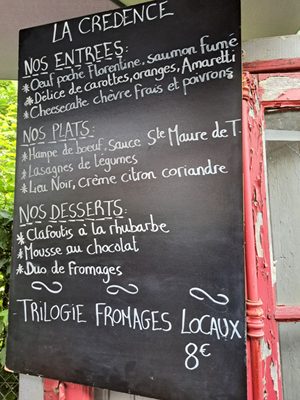 LA CREDENCE
NOS ENTREES:
*Oeuf poché Florentine, saumon fumé
*Délice de carottes, oranges, Amaretti
*Cheesecake chèvre frais et poivrons
NOS PLATS:
*Hampe de boeuf, sauce Ste Maure de T.
*Lasagnes de légumes
*Lieu Noir, crème citron coriandre
NOS DESSERTS:
*Clafoutis à la rhubarbe
*Mousse au chocolat
*Duo de fromages
TRILOGIE FROMAGES LOCAUX
8€